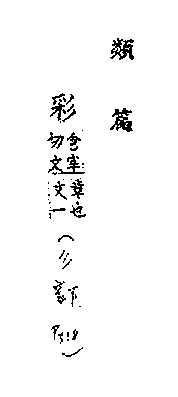 類篇
彩 倉宰切文章也文一 (彡